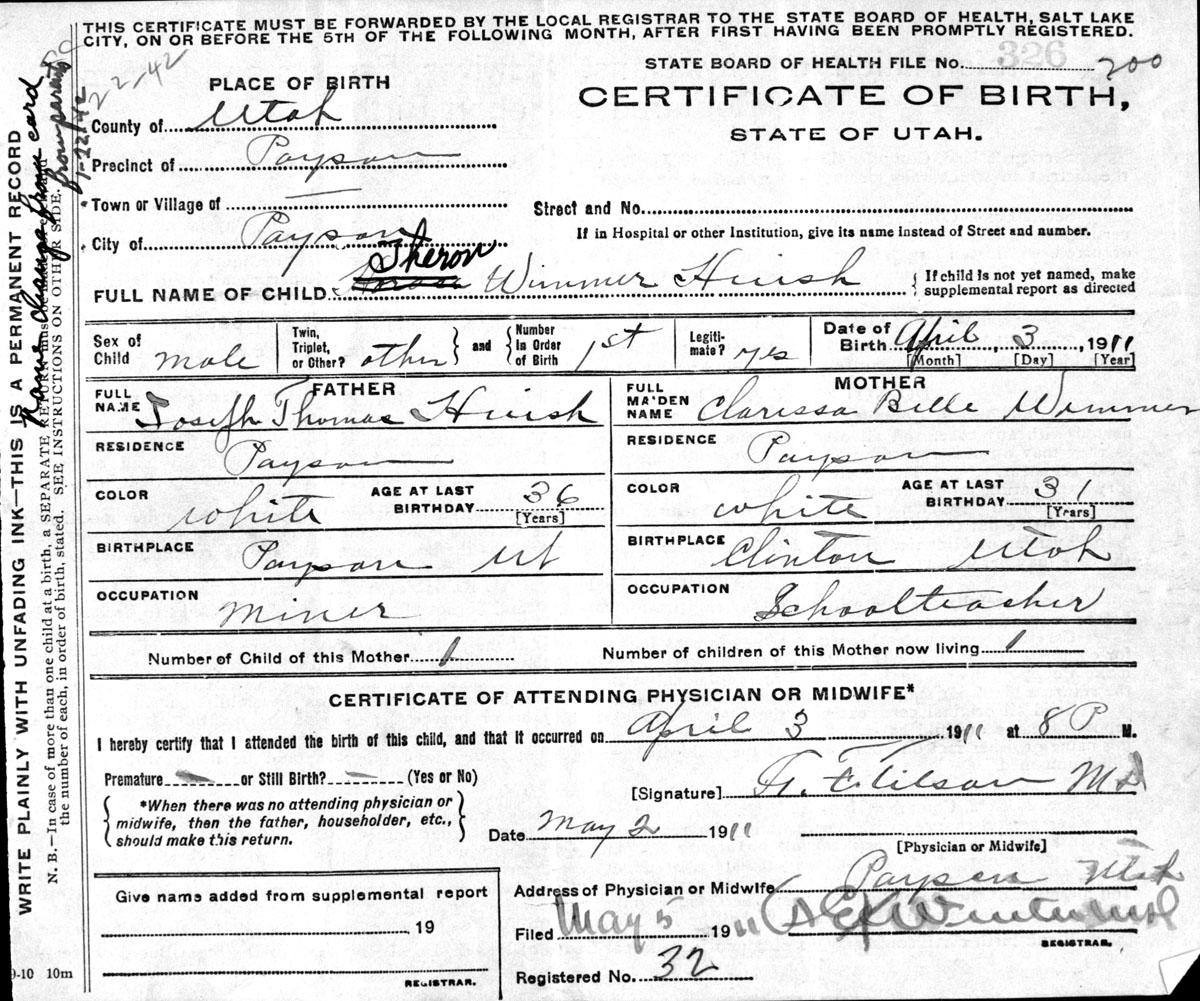 THIS CERTIFICATE MUST BE FORWARDED BY THE LOCAL REGISTRAR TO THE STATE BOARD OF HEALTH, SALT LAKE
CITY, ON OR BEFORE THE 5TH OF THE FOLLOWING MONTH, AFTER FIRST HAVING BEEN PROMPTLY REGISTERED.
326
STATE BOARD OF HEALTH FILE No. 200
CERTIFICATE OF BIRTH,
STATE OF UTAH.
PLACE OF BIRTH
County of Utah
Precinct of Payson
Town or Village of —
Street and No.
If in Hospital or other Institution, give its name instead of Street and number.
City of Payson
Theron
FULL NAME OF CHILD Wimmer Huish
If child is not yet named, make
supplemental report as directed
Sex of Child male
Twin, Triplet, or Other? other
and
Number In Order of Birth 1st
Legiti-mate? yes
Date of Birth April 3 1911
[Month] [Day] [Year]
FATHER
FULL NAME Joseph Thomas Huish
RESIDENCE Payson
COLOR white AGE AT LAST BIRTHDAY 36
[Years]
BIRTHPLACE Payson Ut
OCCUPATION Miner
MOTHER
FULL MA'DEN NAME Clarissa Belle Wimmer
RESIDENCE Payson
COLOR white AGE AT LAST BIRTHDAY 31
[Years]
BIRTHPLACE Clinton Utah
OCCUPATION Schoolteacher
Number of Child of this Mother 1 Number of children of this Mother now living 1
CERTIFICATE OF ATTENDING PHYSICIAN OR MIDWIFE*
I hereby certify that I attended the birth of this child, and that it occurred on April 3 1911 at 8 P M.
Premature or Still Birth? (Yes or No)
*When there was no attending physician or
midwife, then the father, householder, etc.,
should make this return.
[Signature] M D
Date May 2 1911
[Physician or Midwife]
Give name added from supplemental report
19
REGISTRAR.
Address of Physician or Midwife Payson Utah
Filed May 5 1911
REGISTRAR.
Registered No. 32
9-10 10m
WRITE PLAINLY WITH UNFADING INK—THIS IS A PERMANENT RECORD
N. B.—In case of more than one child at a birth, a SEPARATE RETURN must be made
the number of each, in order of birth, stated. SEE INSTRUCTIONS ON OTHER SIDE.
Name change from card
from parents
1-22-42